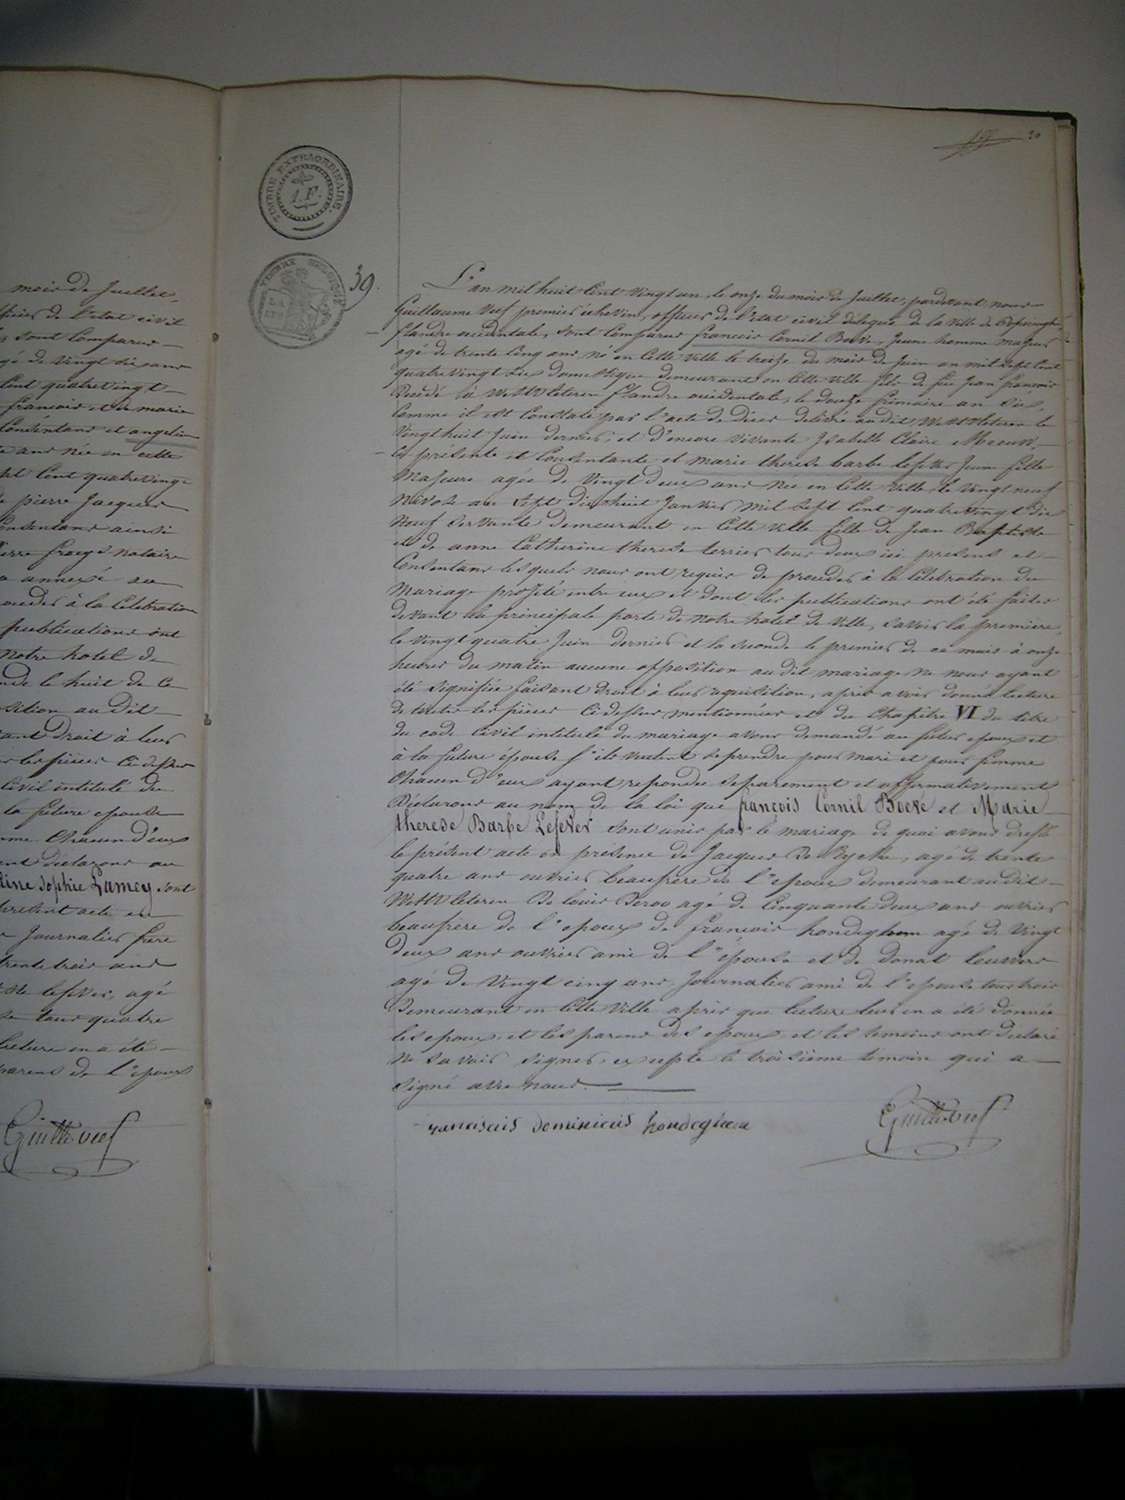 mois de Juillet,
officier de l'état civil
sont Comparus
agé de Vingt six ans
Cent quatrevingt
francois et de marie
Consentans et angeline
ans née en cette
sept Cent quatrevingt
pierre Jacques
Consentans ainsi
notaire
annexé au
procéder à la Célébration
publications ont
notre hotel de
le huit de ce
opposition au dit
faisant Droit à leur
les pièces Ci dessus
Civil intitulé du
la future epouse
femme Chacun d'eux
Déclarons au
Sophie Lamey sont
présent acte en
Journalier frère
trente trois ans
lefever, agé
tous quatre
lecture en a été
parens de l'epoux
Guille Veef
TIMBRE EXTRAORDINAIRE
39.
20
L'an mil huit Cent Vingt un, le onze du mois de Juillet, pardevant nous
Guillaume Veef premier échevin, officier de l'état civil délégué de la Ville de Poperinghe
flandre occidentale, sont Comparus francois Cornil Boeve, Jeune homme majeur
agé de trente Cinq ans né en Cette Ville le treize du mois de Juin an mil sept Cent
quatrevingt six domestique demeurant en Cette Ville fils de feu Jean francois
Décédé à Westvleteren flandre occidentale, le douze frimaire an Six,
Comme il est Constaté par l'acte de décès délivré au dit Westvleteren le
Vingthuit Juin dernier, et d'encore vivante Isabelle Claire
ici présente et Consentante et marie therese barbe lefever Jeune fille
Majeure agée de Vingt deux ans née en Cette Ville, le Vingt neuf
Nivose an Sept dixhuit Janvier Mil Sept Cent quatre Vingt dix
Neuf Servante demeurant en Cette Ville fille de Jean Baptiste
et de anne Catherine therese terrier tous Deux ici présens et
Consentans les quels nous ont requis de procéder à la Célébration du
Mariage projeté entre eux et dont les publications ont été faites
devant la principale porte de notre hotel de Ville, savoir la première,
le Vingt quatre Juin dernier et la seconde le premier de ce mois à onze
heures du matin aucune opposition au dit mariage ne nous ayant
été signifiée faisant droit à leur requisition, après avoir donné lecture
de toutes les pièces Ci dessus mentionnées et du Chapitre VI du titre
du code Civil intitulé du mariage avons demandé au futur epoux et
à la future épouse s'ils veulent se prendre pour mari et pour femme
Chacun d'eux ayant repondu separement et affirmativement
Déclarons au nom de la loi que francois Cornil Boeve et Marie
therese Barbe Lefever sont unis par le mariage de quoi avons dressé
le présent acte en présence de Jacques De Rycke, agé de trente
quatre ans ouvrier beaufrère de l'epoux demeurant au dit
Westvleteren De louis agé de Cinquante deux ans ouvrier
beaufrère de l'epoux de francois hondeghem agé de Vingt
deux ans ouvrier ami de l'épouse et de donat
agé de Vingt cinq ans, Journalier ami de l'epouse tous trois
Demeurant en Cette Ville après que lecture leur en a été donnée
les epoux, et les parens des epoux, et les temoins ont declaré
ne savoir signer, excepté le troisième temoin qui a
signé avec nous.
fransciscus dominicus hondeghem
Guille Veef